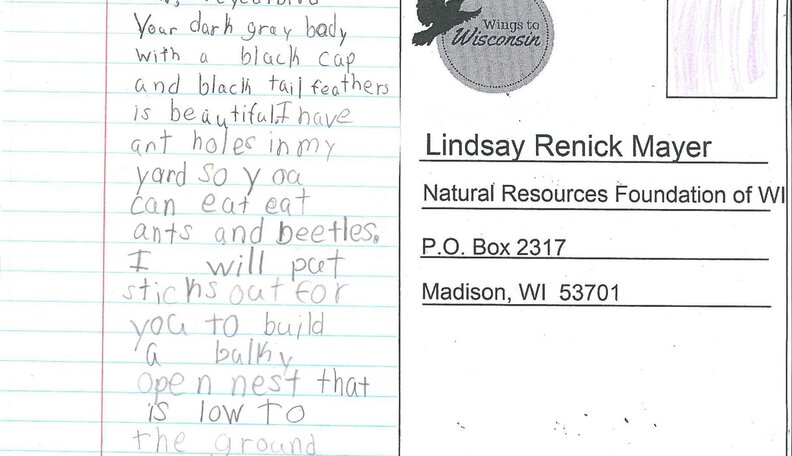 Your dark gray body
with a black cap
and black tail feathers
is beautiful. I have
ant holes in my
yard so you
can eat eat
ants and beetles.
I will put
sticks out for
you to build
a bulky
open nest that
is low to
the ground
Wings to
Wisconsin
Lindsay Renick Mayer
Natural Resources Foundation of WI
P.O. Box 2317
Madison, WI 53701